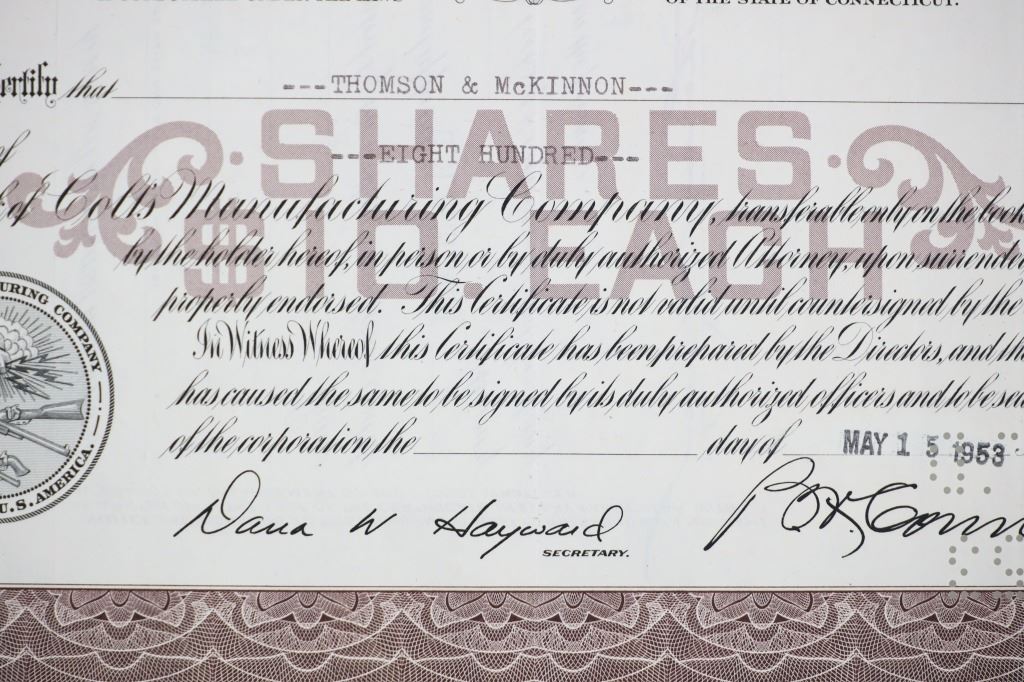 OF THE STATE OF CONNECTICUT.
Certify that ---THOMSON & McKINNON---
SHARES
of ---EIGHT HUNDRED---
of Colt's Manufacturing Company, transferable only on the book
$10. EACH
by the holder hereof, in person or by duly authorized Attorney, upon surrender
properly endorsed. This Certificate is not valid until countersigned by the
In Witness Whereof this Certificate has been prepared by the Directors, and the
has caused the same to be signed by its duly authorized officers and to be sea
of the corporation the day of MAY 15 1953
URING COMPANY
U.S. AMERICA.
Dana W Hayward
SECRETARY.